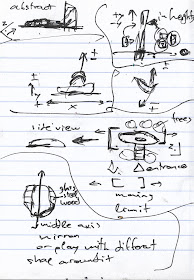 abstract
in heights
z
±
±
±
x
side view
trees
z
entrance
glass
steel
wood
moving
limit
middle axis
mirron
or play with different
shape around it